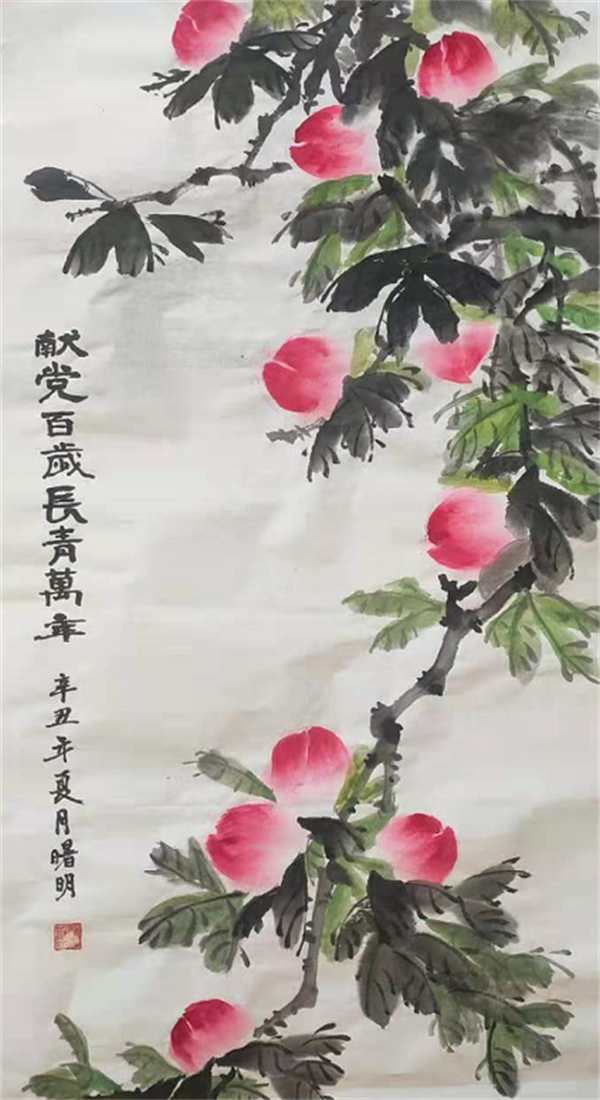 献党百歲長青萬年
辛丑年夏月曙明